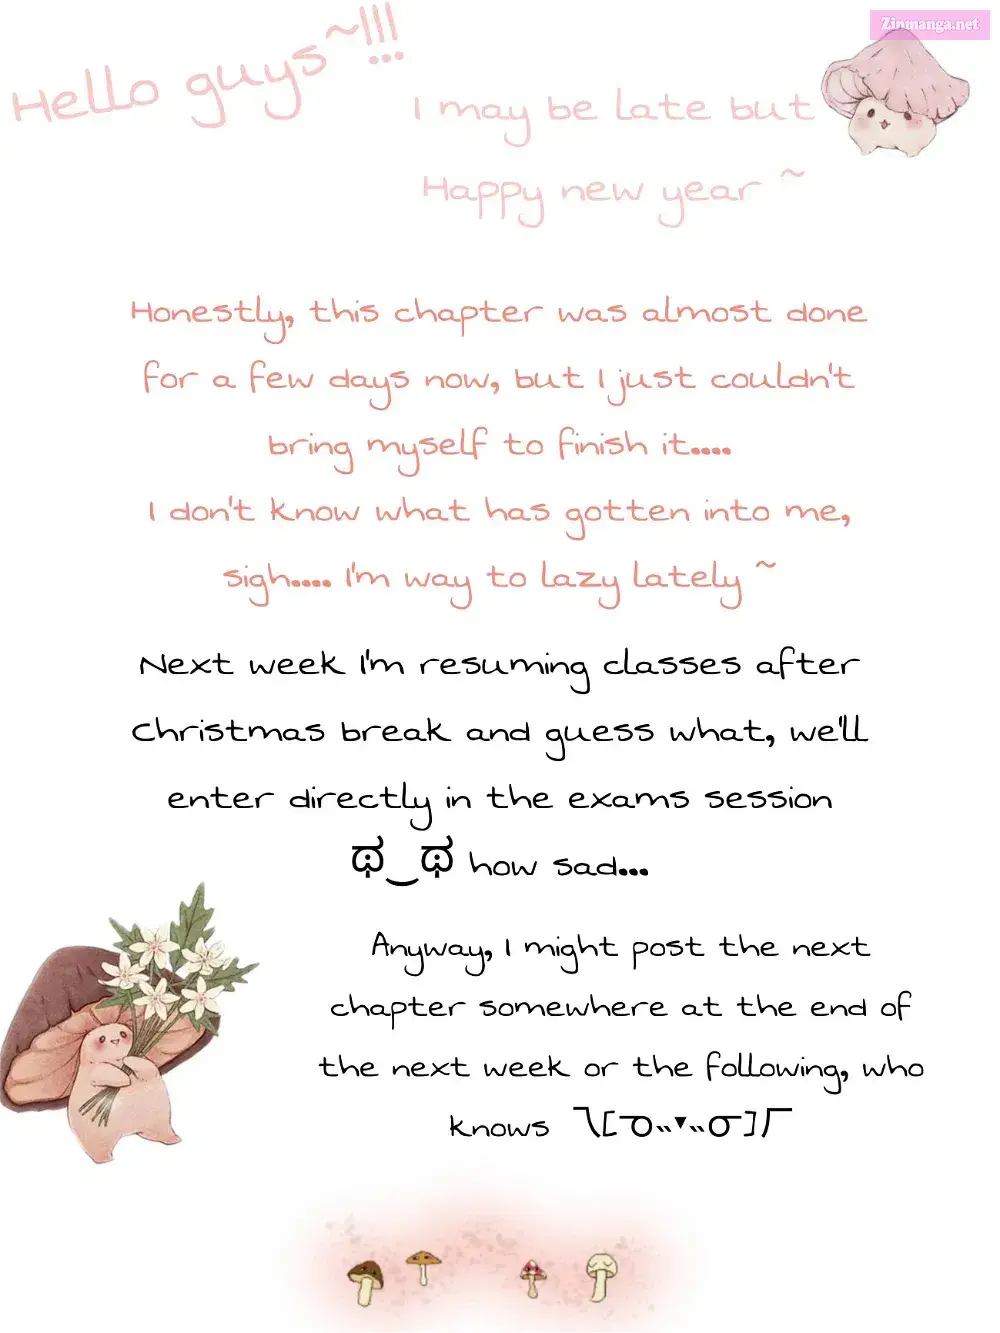 Zinmanga.net
Hello guys~!!!
I may be late but
Happy new year ~
Honestly, this chapter was almost done
for a few days now, but I just couldn't
bring myself to finish it....
I don't know what has gotten into me,
sigh.... I'm way to lazy lately ~
Next week I'm resuming classes after
Christmas break and guess what, we'll
enter directly in the exams session
ಥ‿ಥ how sad...
Anyway, I might post the next
chapter somewhere at the end of
the next week or the following, who
knows 乁[ ͡ಠ˵▾˵ಠ ͡]ㄏ